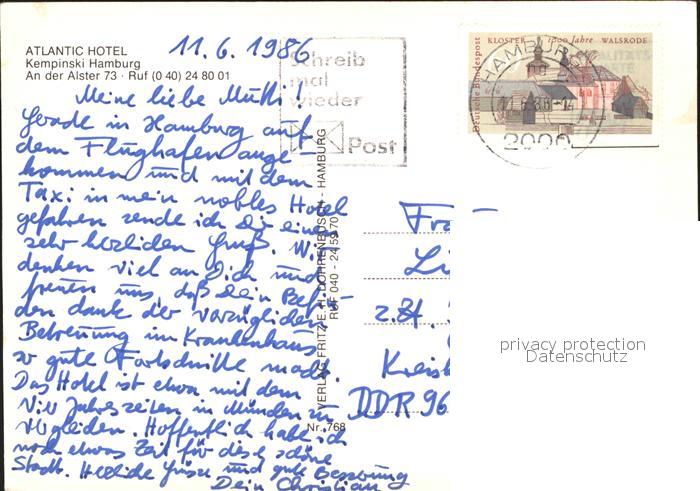 ATLANTIC HOTEL
Kempinski Hamburg
An der Alster 73 · Ruf (0 40) 24 80 01
11.6.1986
Schreib
mal
wieder
Post
Deutsche Bundespost
KLOSTER 1200 Jahre WALSRODE
HAMBURG
2000
Meine liebe Mutti!
Gerade in Hamburg auf
dem Flughafen ange-
kommen und mit dem
Taxi in mein nobles Hotel
gefahren sende ich Dir einen
sehr herzlichen Gruß. Wir
denken viel an Dich und
freuen uns, daß Dein Befin-
den dank der vorzüglichen
Betreuung im Krankenhaus
so gute Fortschritte macht.
Das Hotel ist etwa mit dem
Vier Jahreszeiten in München zu
vergleichen. Hoffentlich habe ich
noch etwas Zeit für diese schöne
Stadt. Herzliche Grüsse und gute Besserung
Dein Christian
VERLAG FRITZ E. H. LOHRENBUSCH - HAMBURG
RUF 040 - 24 59 70
Nr. 768
z.Zt.
DDR 96
privacy protection
Datenschutz